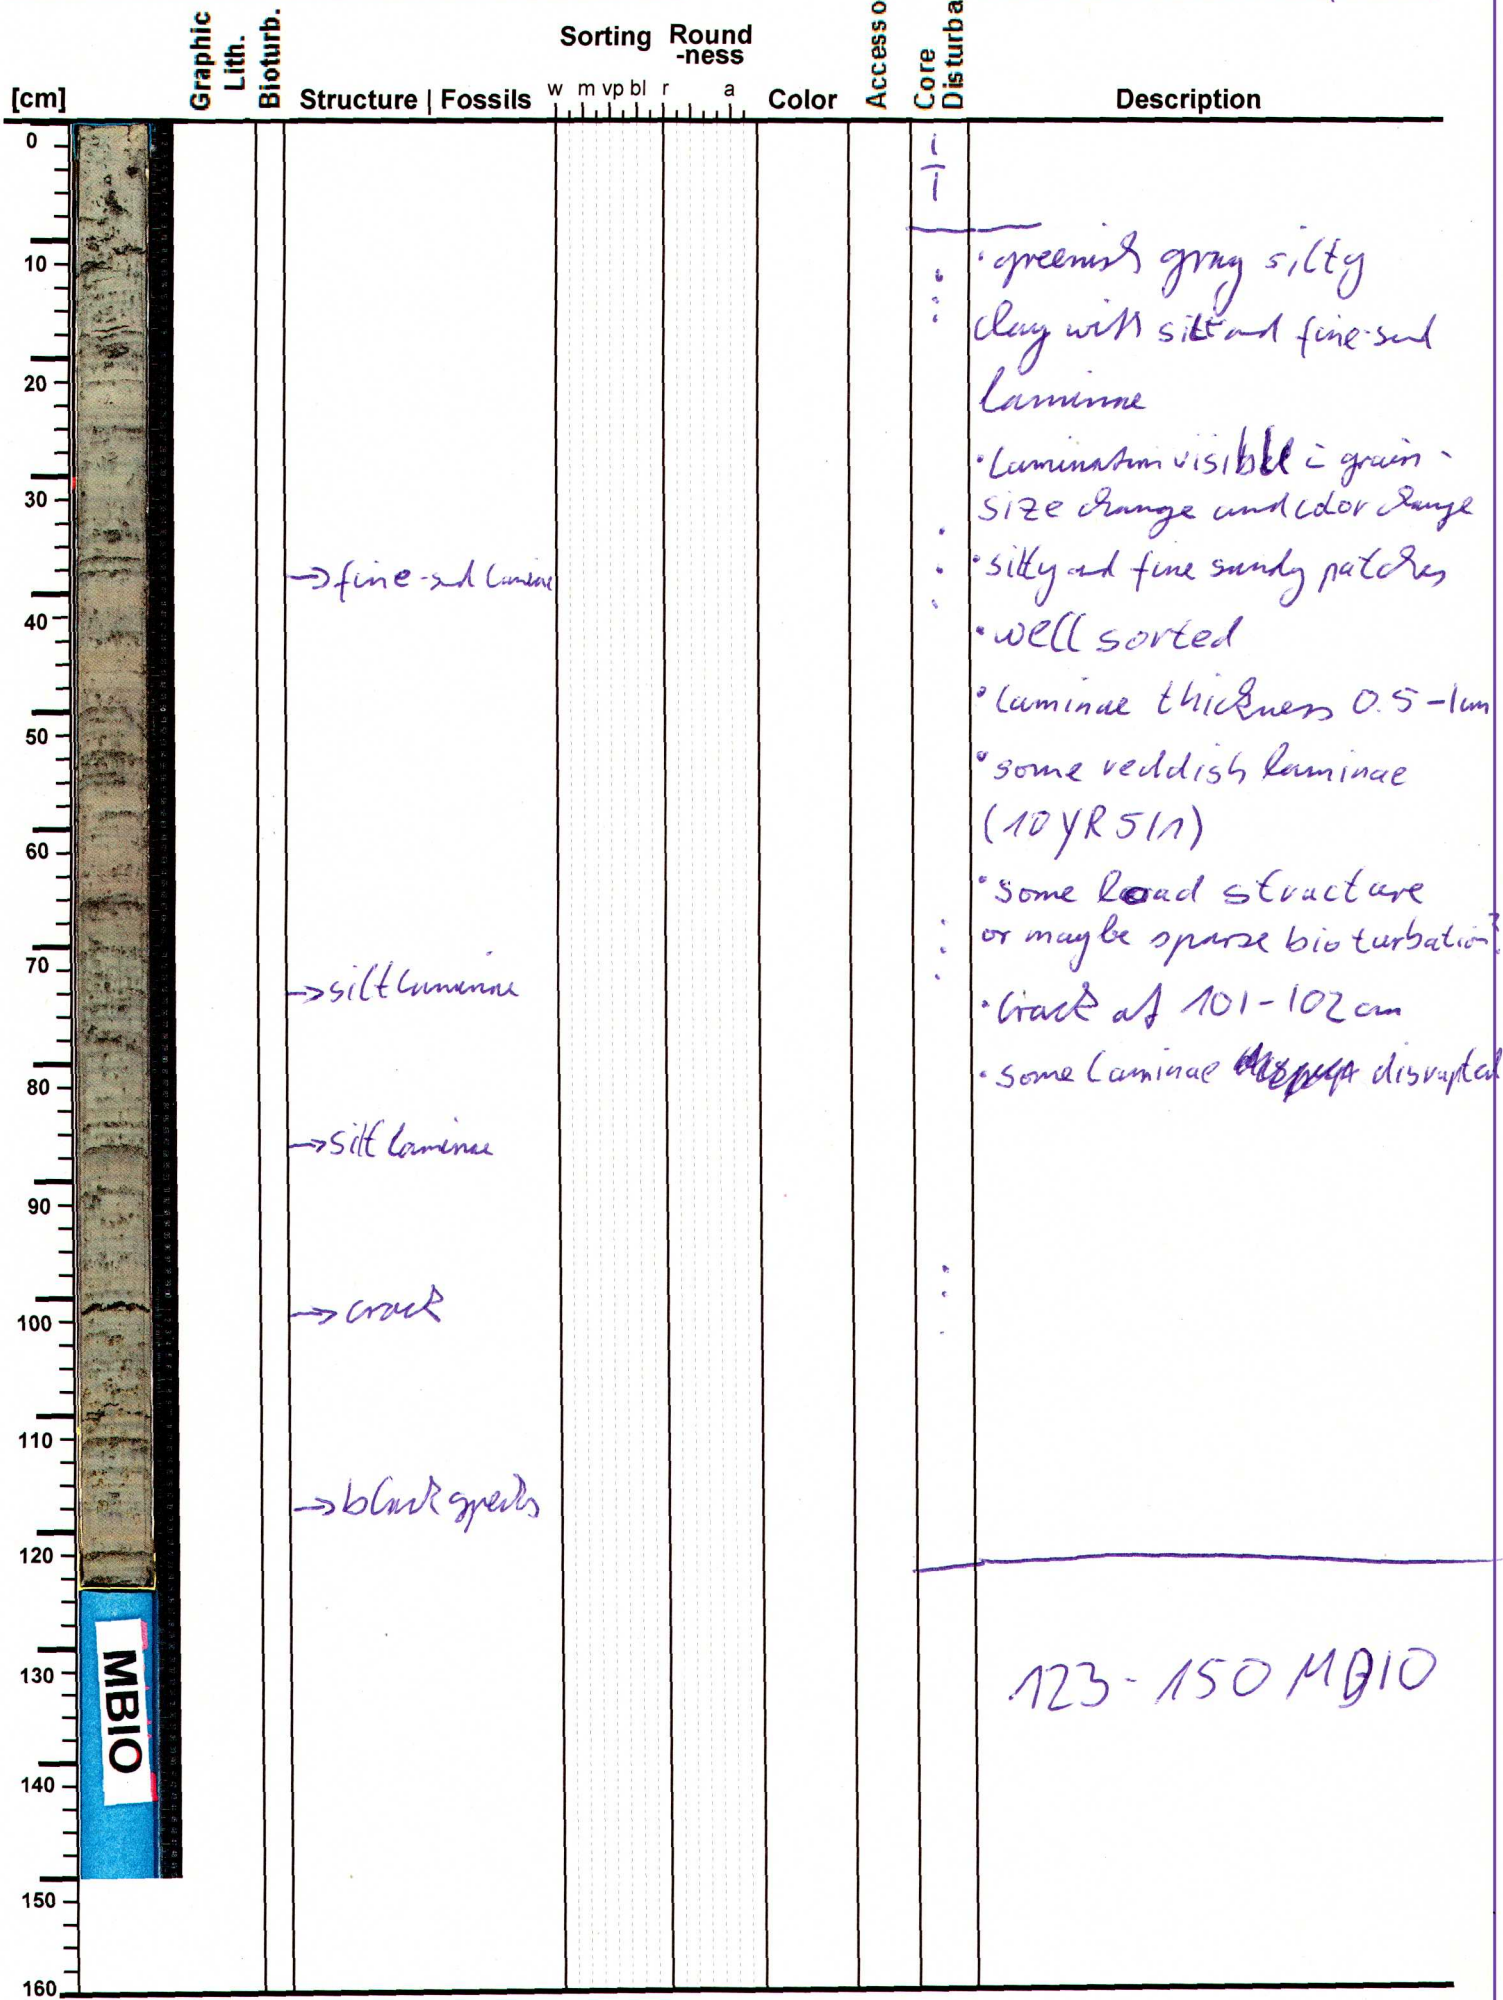 [cm]
Graphic
Lith.
Bioturb.
Structure | Fossils
Sorting
w m vp bl
Round
-ness
r a
Color
Accesso
Core
Disturba
Description
0
10
20
30
40
50
60
70
80
90
100
110
120
130
140
150
160
MBIO
→ fine-sand laminae
→ silt laminae
→ silt laminae
→ crack
→ black specks
• greenish gray silty
clay with silt and fine-sand
laminae
• Lamination visible i grain-
size change and color change
• silty and fine sandy patches
• well sorted
• laminae thickness 0.5-1cm
• some reddish laminae
(10YR 5/1)
• some load structure
or maybe sparse bioturbation?
• crack at 101-102 cm
• some laminae disrupted
123-150 MBIO